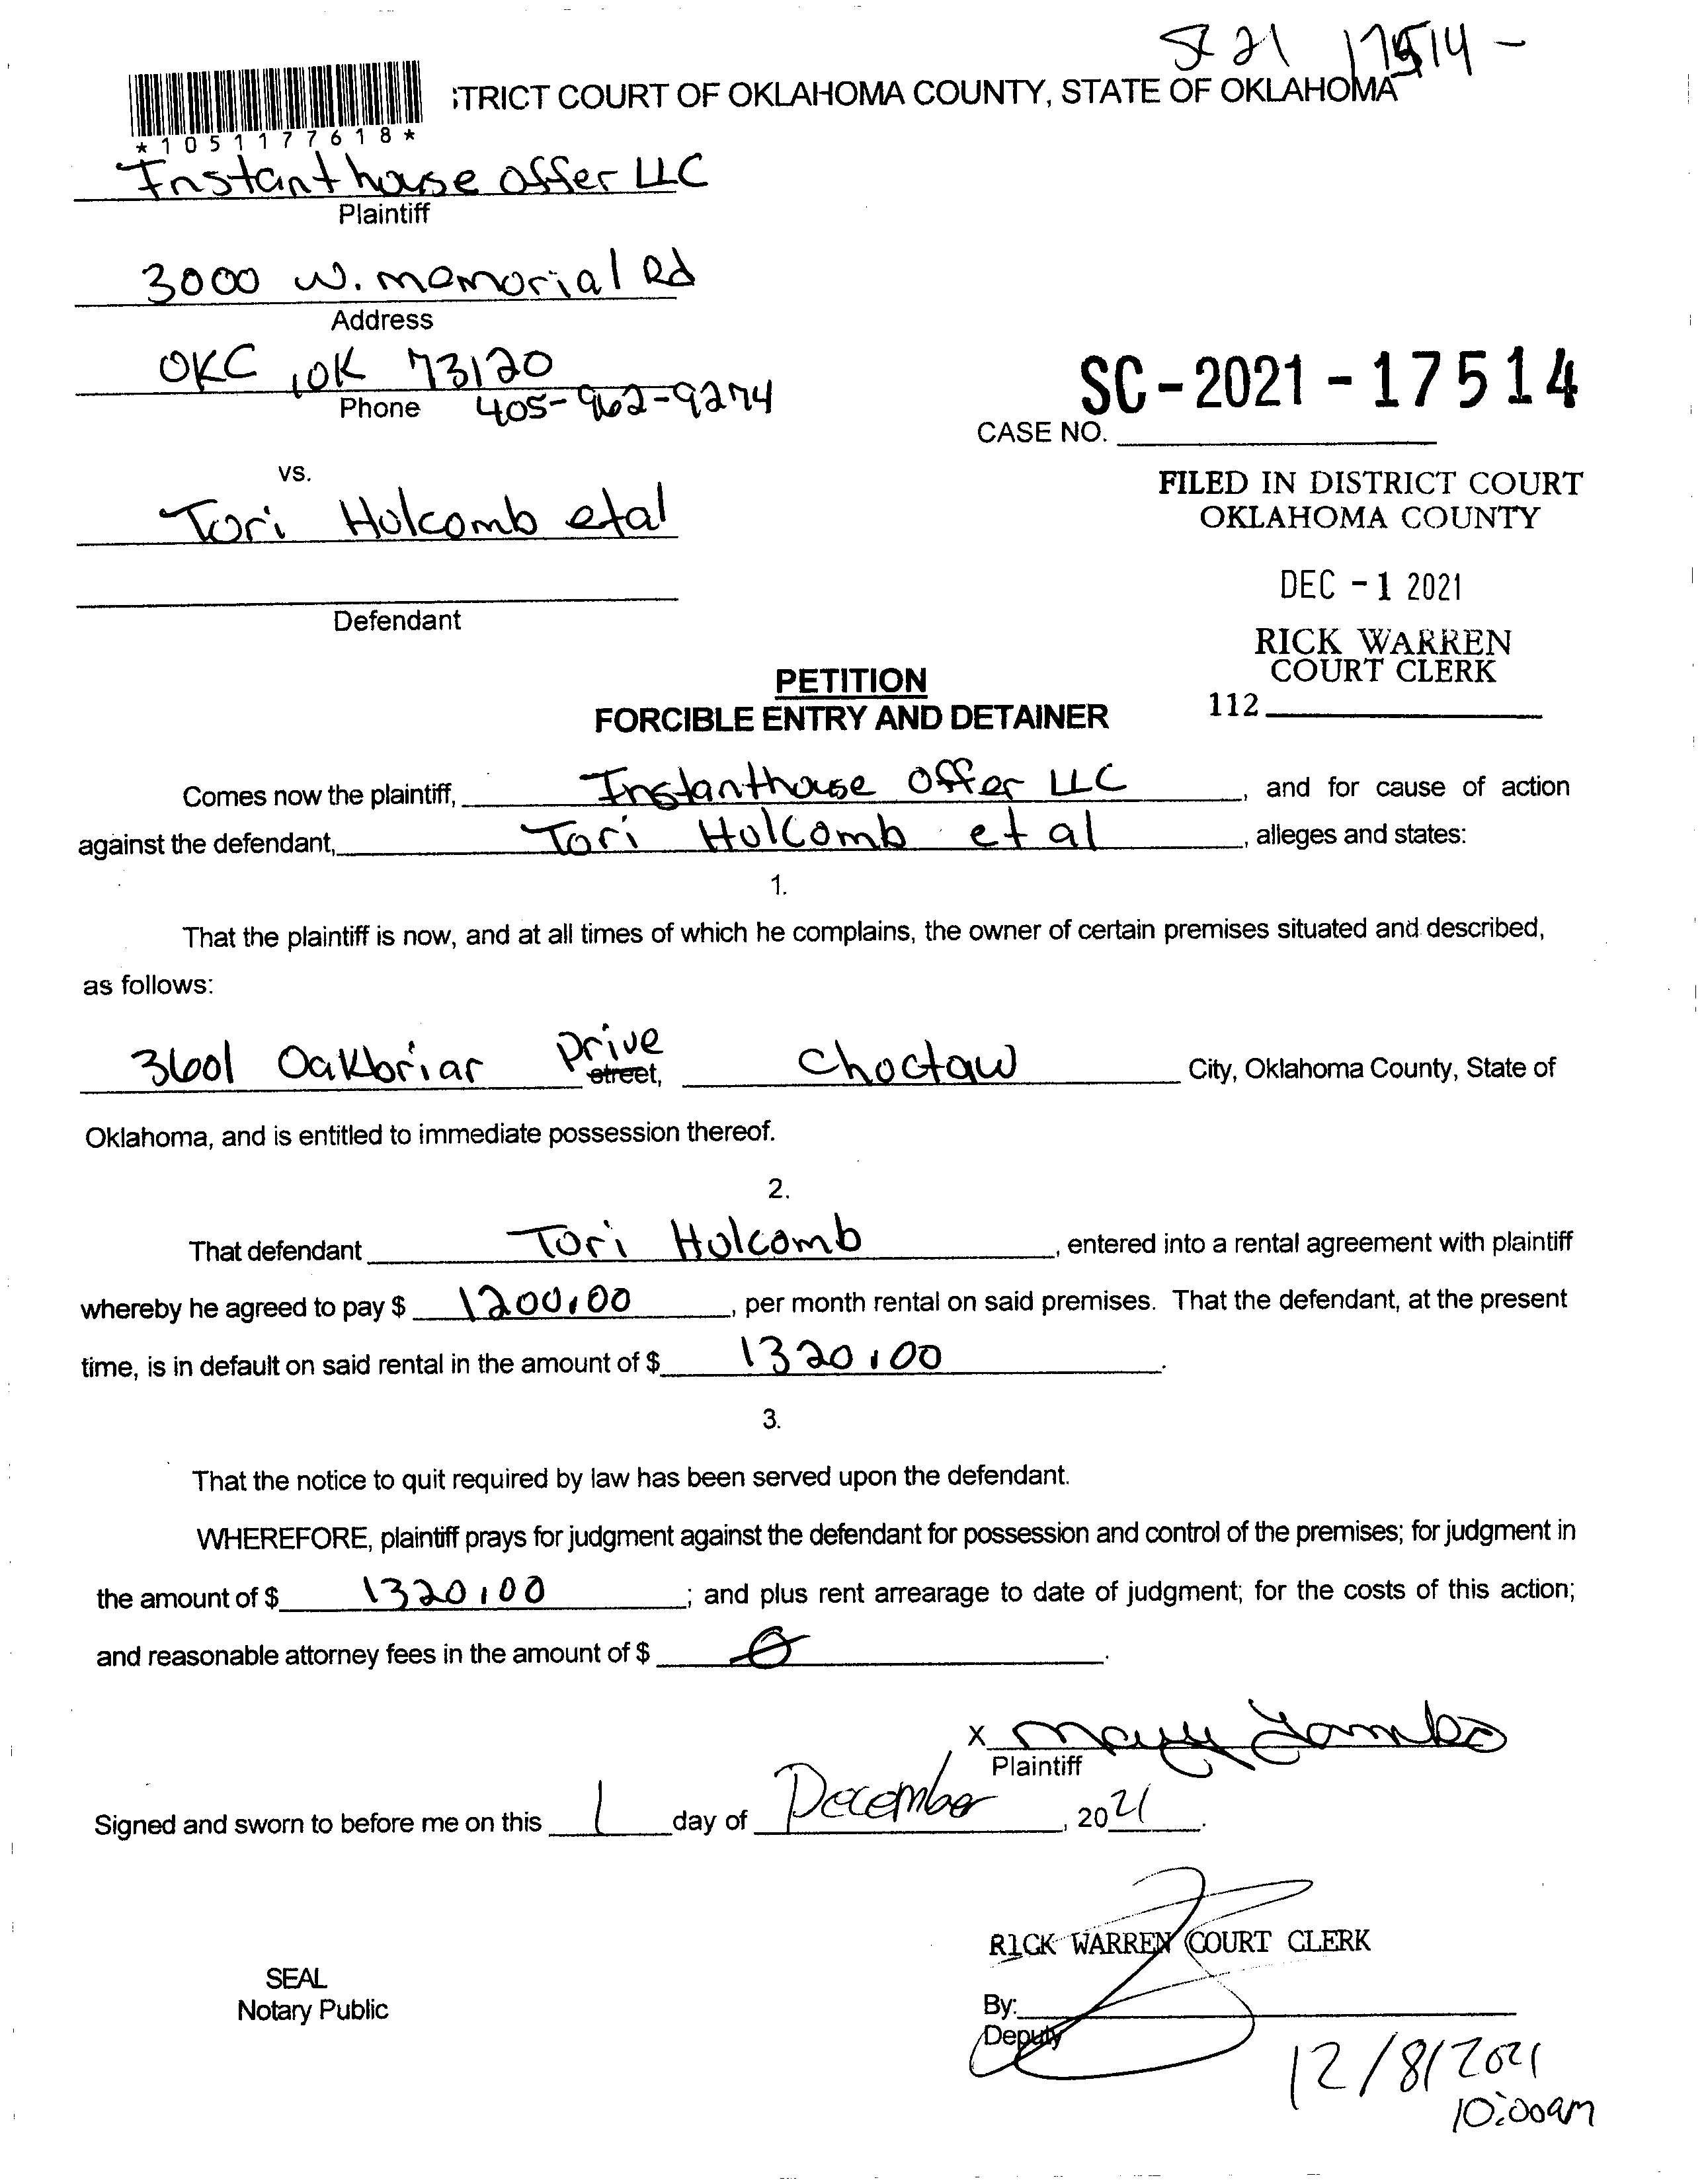 SC 21 17514 -
;TRICT COURT OF OKLAHOMA COUNTY, STATE OF OKLAHOMA
* 1 0 5 1 1 7 7 6 1 8 *
Instanthouse offer LLC
Plaintiff
3000 W. memorial Rd
Address
OKC , OK 73120
Phone 405-962-9274
SC-2021-17514
CASE NO.
vs.
Tori Holcomb etal
Defendant
FILED IN DISTRICT COURT
OKLAHOMA COUNTY
DEC -1 2021
RICK WARREN
COURT CLERK
112
PETITION
FORCIBLE ENTRY AND DETAINER
Comes now the plaintiff, Instanthouse Offer LLC , and for cause of action
against the defendant, Tori Holcomb et al , alleges and states:
1.
That the plaintiff is now, and at all times of which he complains, the owner of certain premises situated and described,
as follows:
3601 Oakbriar Drive street, Choctaw City, Oklahoma County, State of
Oklahoma, and is entitled to immediate possession thereof.
2.
That defendant Tori Holcomb , entered into a rental agreement with plaintiff
whereby he agreed to pay $ 1200.00 , per month rental on said premises. That the defendant, at the present
time, is in default on said rental in the amount of $ 1320.00 .
3.
That the notice to quit required by law has been served upon the defendant.
WHEREFORE, plaintiff prays for judgment against the defendant for possession and control of the premises; for judgment in
the amount of $ 1320.00 ; and plus rent arrearage to date of judgment; for the costs of this action;
and reasonable attorney fees in the amount of $ 0 .
X
Plaintiff
Signed and sworn to before me on this 1 day of December , 2021 .
RICK WARREN COURT CLERK
SEAL
Notary Public
By:
Deputy
12/8/2021
10:00am